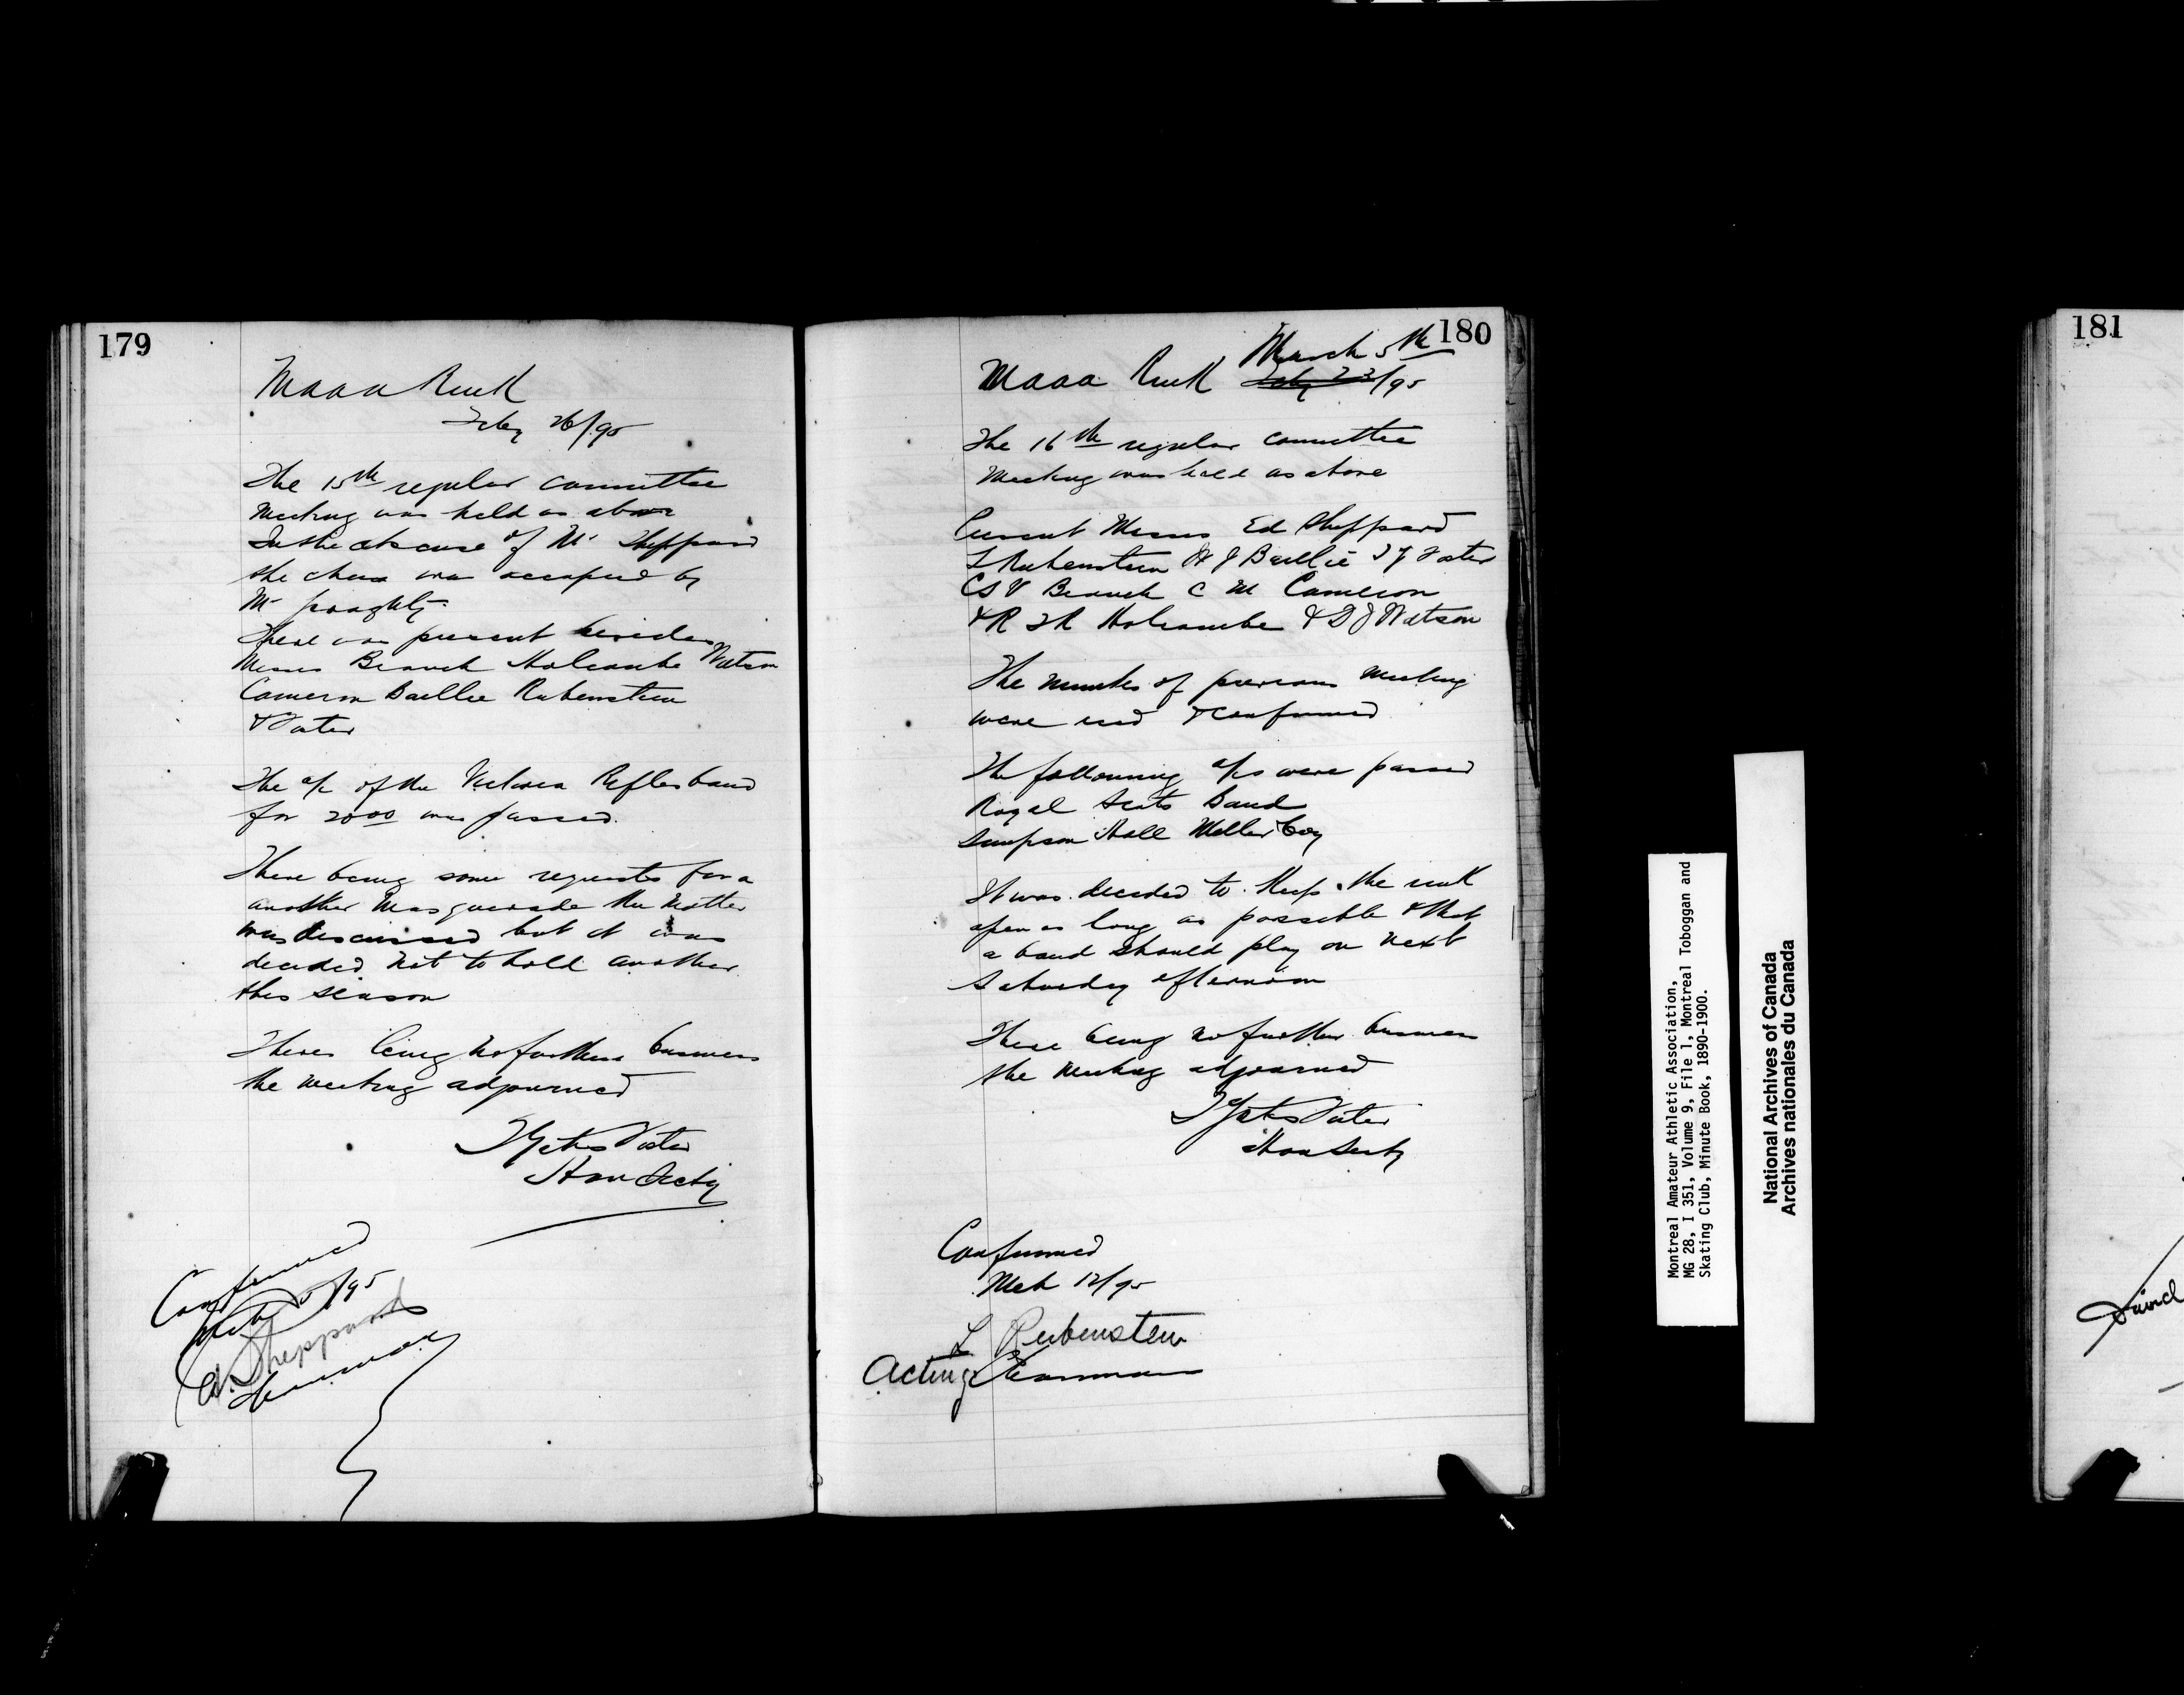 179
MAAA Rink
Feby 26/95
The 15th regular committee
Meeting was held as above
In the absence of Mr Sheppard
the chair was occupied by
Mr
There was present besides
Messrs Branch Holcombe Watson
Cameron Baillie Rubenstein
& Foster
The a/c of the Victoria Rifles band
for 2000 was passed.
There being some requests for a
another Masquerade the matter
was discussed but it was
decided not to hold another
this season
There being no further business
the meeting adjourned
T Yates Foster
Hon Secty
Confirmed
Mch 5/95
Ed. Sheppard
Chairman
180
March 5th
MAAA Rink Feby 23/95
The 16th regular committee
Meeting was held as above
Present Messrs Ed Sheppard
L Rubenstein H J Baillie T Y Foster
C S V Branch C M Cameron
& R F R Holcombe & D J Watson
The minutes of previous meeting
were read & confirmed
The following a/cs were passed
Royal Scots Band
Simpson Hall Miller Coy
It was decided to keep the rink
open as long as possible & that
a band should play on next
Saturday afternoon
There being no further business
the meeting adjourned
T Yates Foster
Hon Secty
Confirmed
Mch 12/95
L Rubenstein
Acting Chairman
Montreal Amateur Athletic Association,
MG 28, I 351, Volume 9, File 1, Montreal Toboggan and
Skating Club, Minute Book, 1890-1900.
National Archives of Canada
Archives nationales du Canada
181